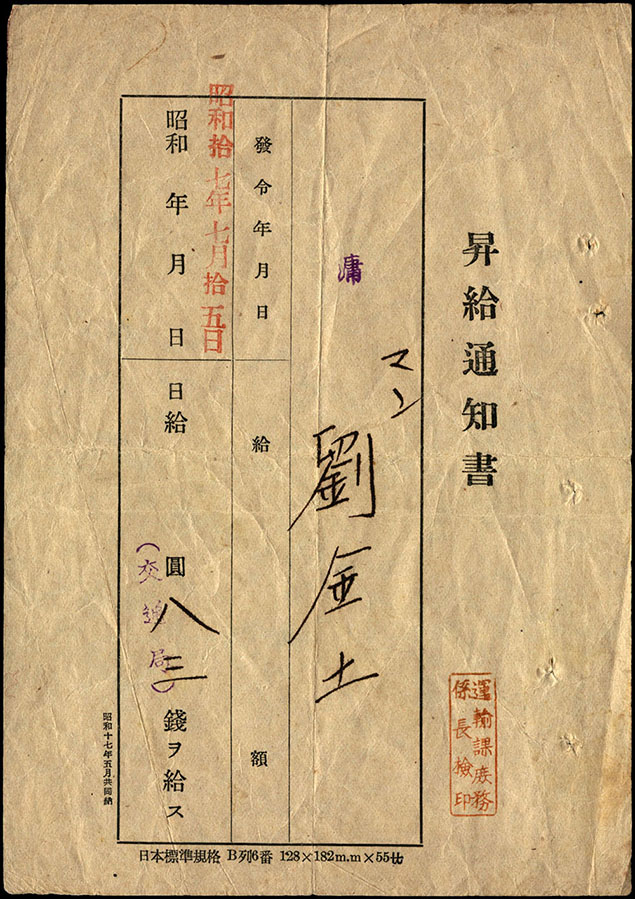 昇給通知書
運輸課庶務
係長検印
傭
マン
劉金土
發令年月日
給額
昭和拾七年七月拾五日
昭和 年 月 日
日給 圓八三錢ヲ給ス
(交通局)
昭和十七年五月共同納
日本標準規格 B列6番 128×182m.m×55瓩